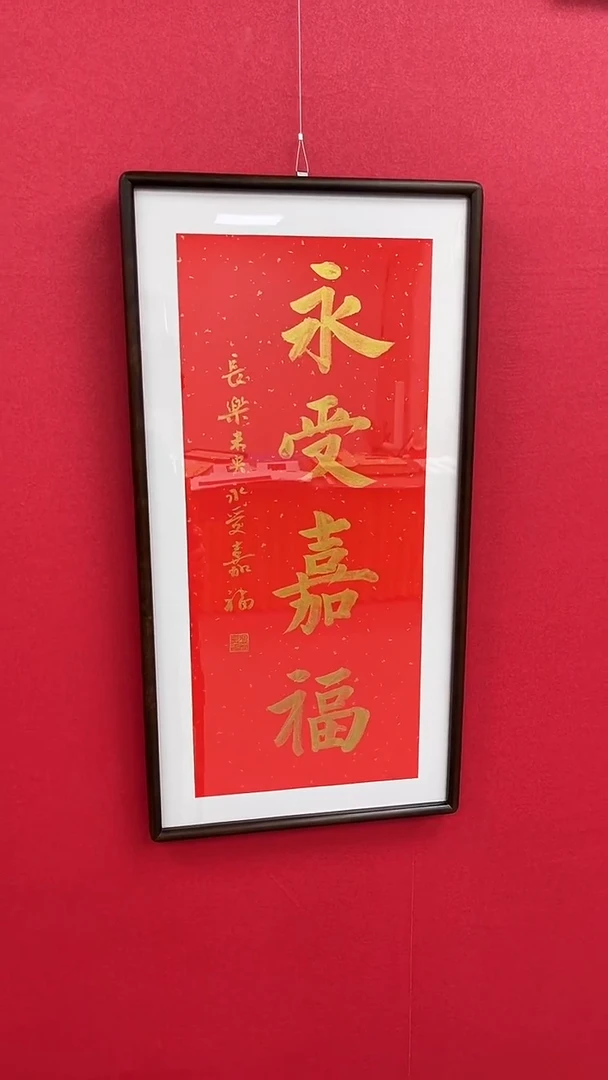 永受嘉福
長樂未央永受嘉福